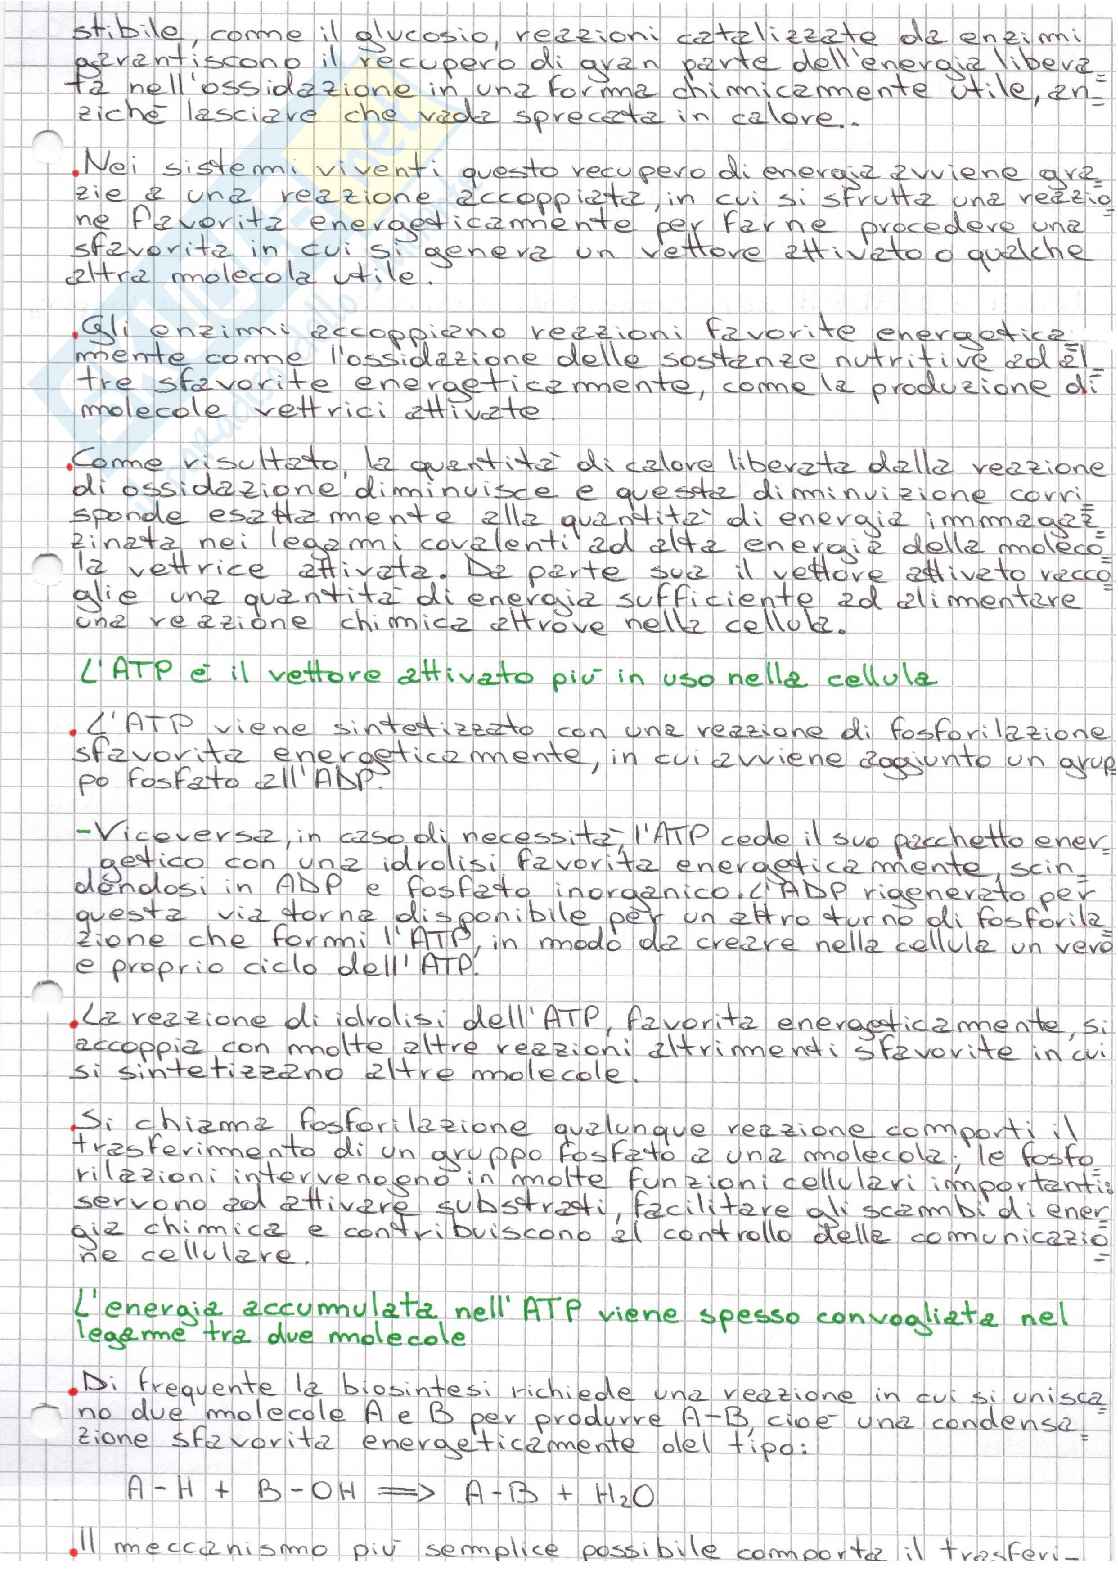 stibile, come il glucosio, reazioni catalizzate da enzimi
garantiscono il recupero di gran parte dell'energia libera=
ta nell'ossidazione in una forma chimicamente utile, an=
ziché lasciare che vada sprecata in calore..
.Nei sistemi viventi questo recupero di energia avviene gra=
zie a una reazione accoppiata, in cui si sfrutta una reazio=
ne favorita energeticamente per farne procedere una
sfavorita in cui si genera un vettore attivato o qualche
altra molecola utile.
.Gli enzimi accoppiano reazioni favorite energetica=
mente come l'ossidazione delle sostanze nutritive ad al=
tre sfavorite energeticamente, come la produzione di
molecole vettrici attivate
.Come risultato, la quantità di calore liberata dalla reazione
di ossidazione diminuisce e questa diminuizione corri=
sponde esattamente alla quantità di energia immagaz=
zinata nei legami covalenti ad alta energia della moleco=
la vettrice attivata. Da parte sua il vettore attivato racco=
glie una quantità di energia sufficiente ad alimentare
una reazione chimica altrove nella cellula.
L'ATP è il vettore attivato più in uso nella cellula
.L'ATP viene sintetizzato con una reazione di fosforilazione
sfavorita energeticamente, in cui avviene aggiunto un grup=
po fosfato all'ADP.
-Viceversa, in caso di necessità, l'ATP cede il suo pacchetto ener=
getico con una idrolisi favorita energeticamente, scin=
dendosi in ADP e fosfato inorganico. L'ADP rigenerato per
questa via torna disponibile per un altro turno di fosforila=
zione che formi l'ATP, in modo da creare nella cellula un vero
e proprio ciclo dell'ATP.
.La reazione di idrolisi dell'ATP, favorita energeticamente, si
accoppia con molte altre reazioni altrimenti sfavorite in cui
si sintetizzano altre molecole.
.Si chiama fosforilazione qualunque reazione comporti il
trasferimento di un gruppo fosfato a una molecola; le fosfo=
rilazioni intervengono in molte funzioni cellulari importanti:
servono ad attivare substrati, facilitare gli scambi di ener=
gia chimica e contribuiscono al controllo della comunicazio=
ne cellulare.
L'energia accumulata nell'ATP viene spesso convogliata nel
legame tra due molecole
.Di frequente la biosintesi richiede una reazione in cui si unisca=
no due molecole A e B per produrre A-B, cioè una condensa=
zione sfavorita energeticamente del tipo:
A-H + B-OH => A-B + H₂O
.Il meccanismo più semplice possibile comporta il trasferi-